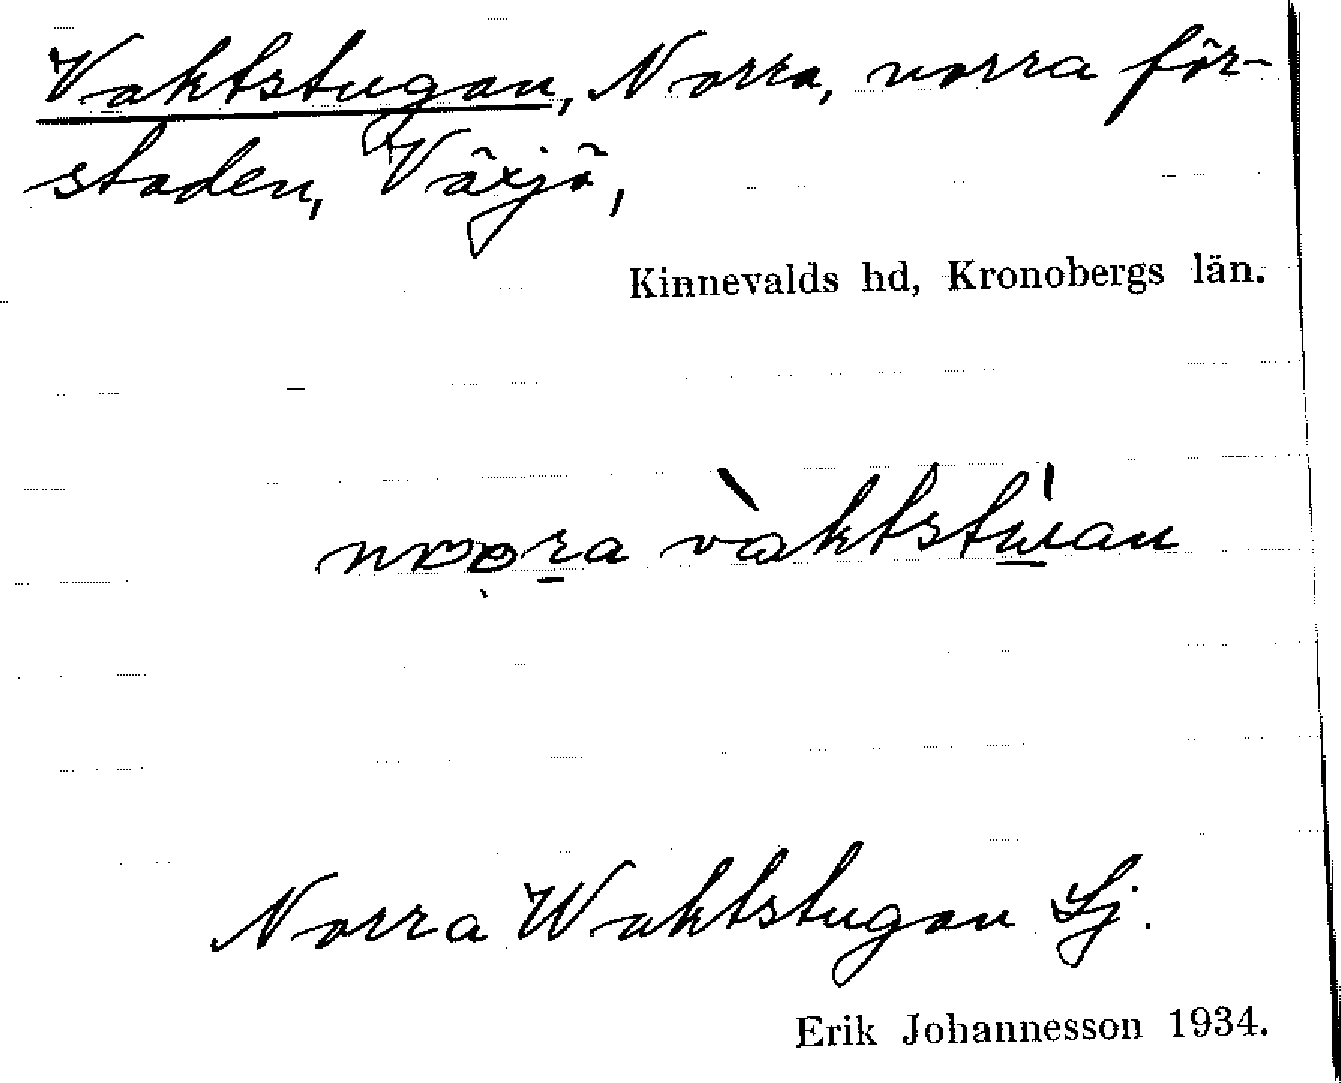 Vaktstugan, Norra, norra för-
staden, Växjö,
Kinnevalds hd, Kronobergs län.
vàktstu̲'an
Norra Waktstugan Lj.
Erik Johannesson 1934.